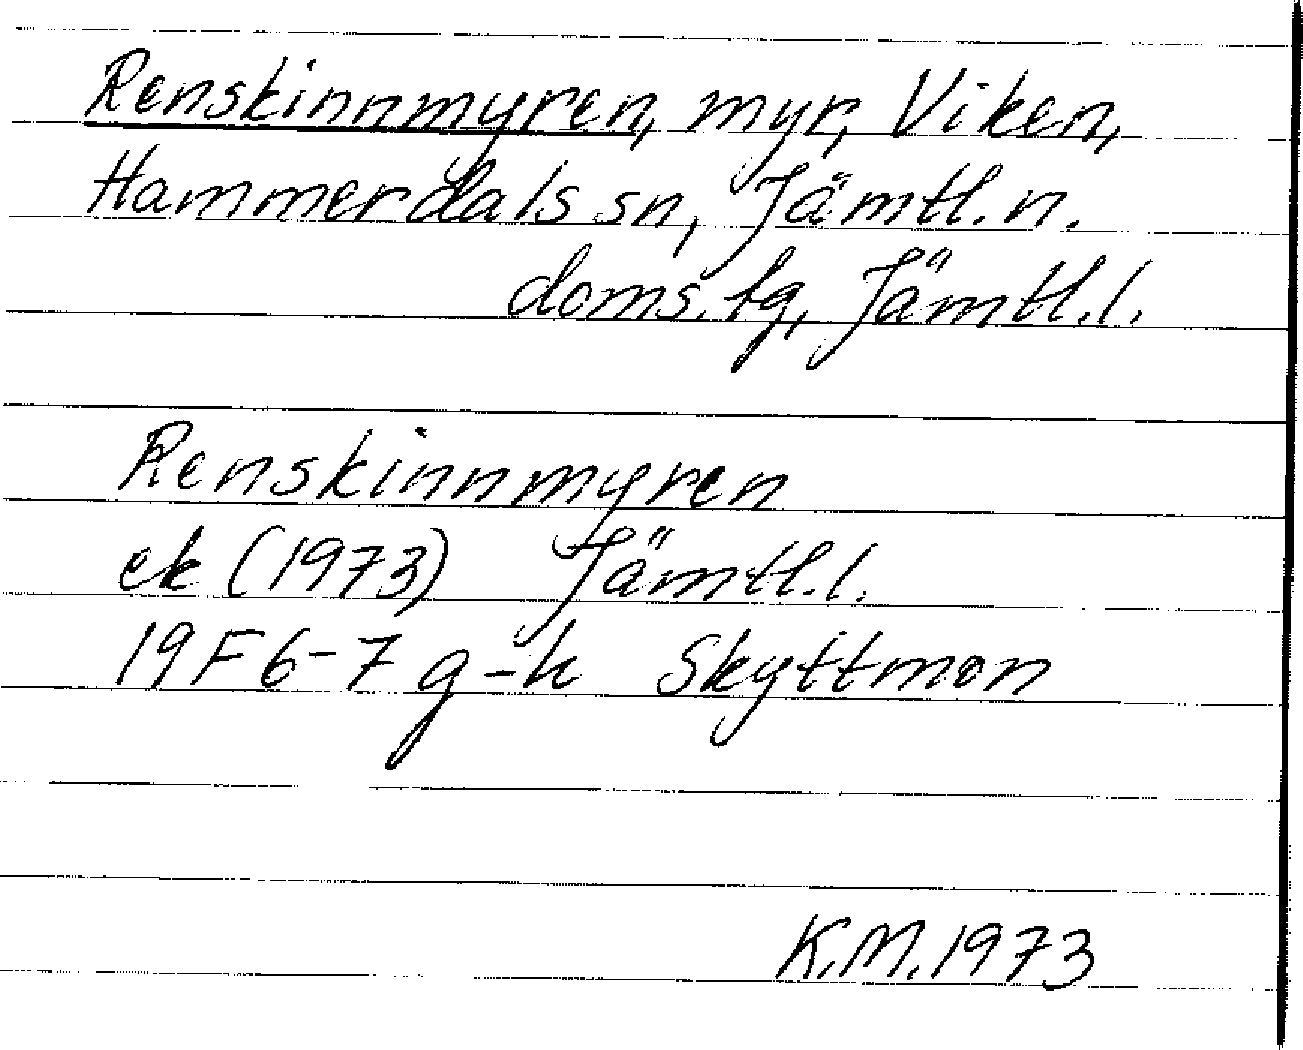 Renskinnmyren, myr, Viken,
Hammerdals sn, Jämtl. n.
doms. tg, Jämtl. l.
Renskinnmyren
ek (1973) Jämtl. l.
19 F 6-7 g-h Skyttmon
K.M. 1973